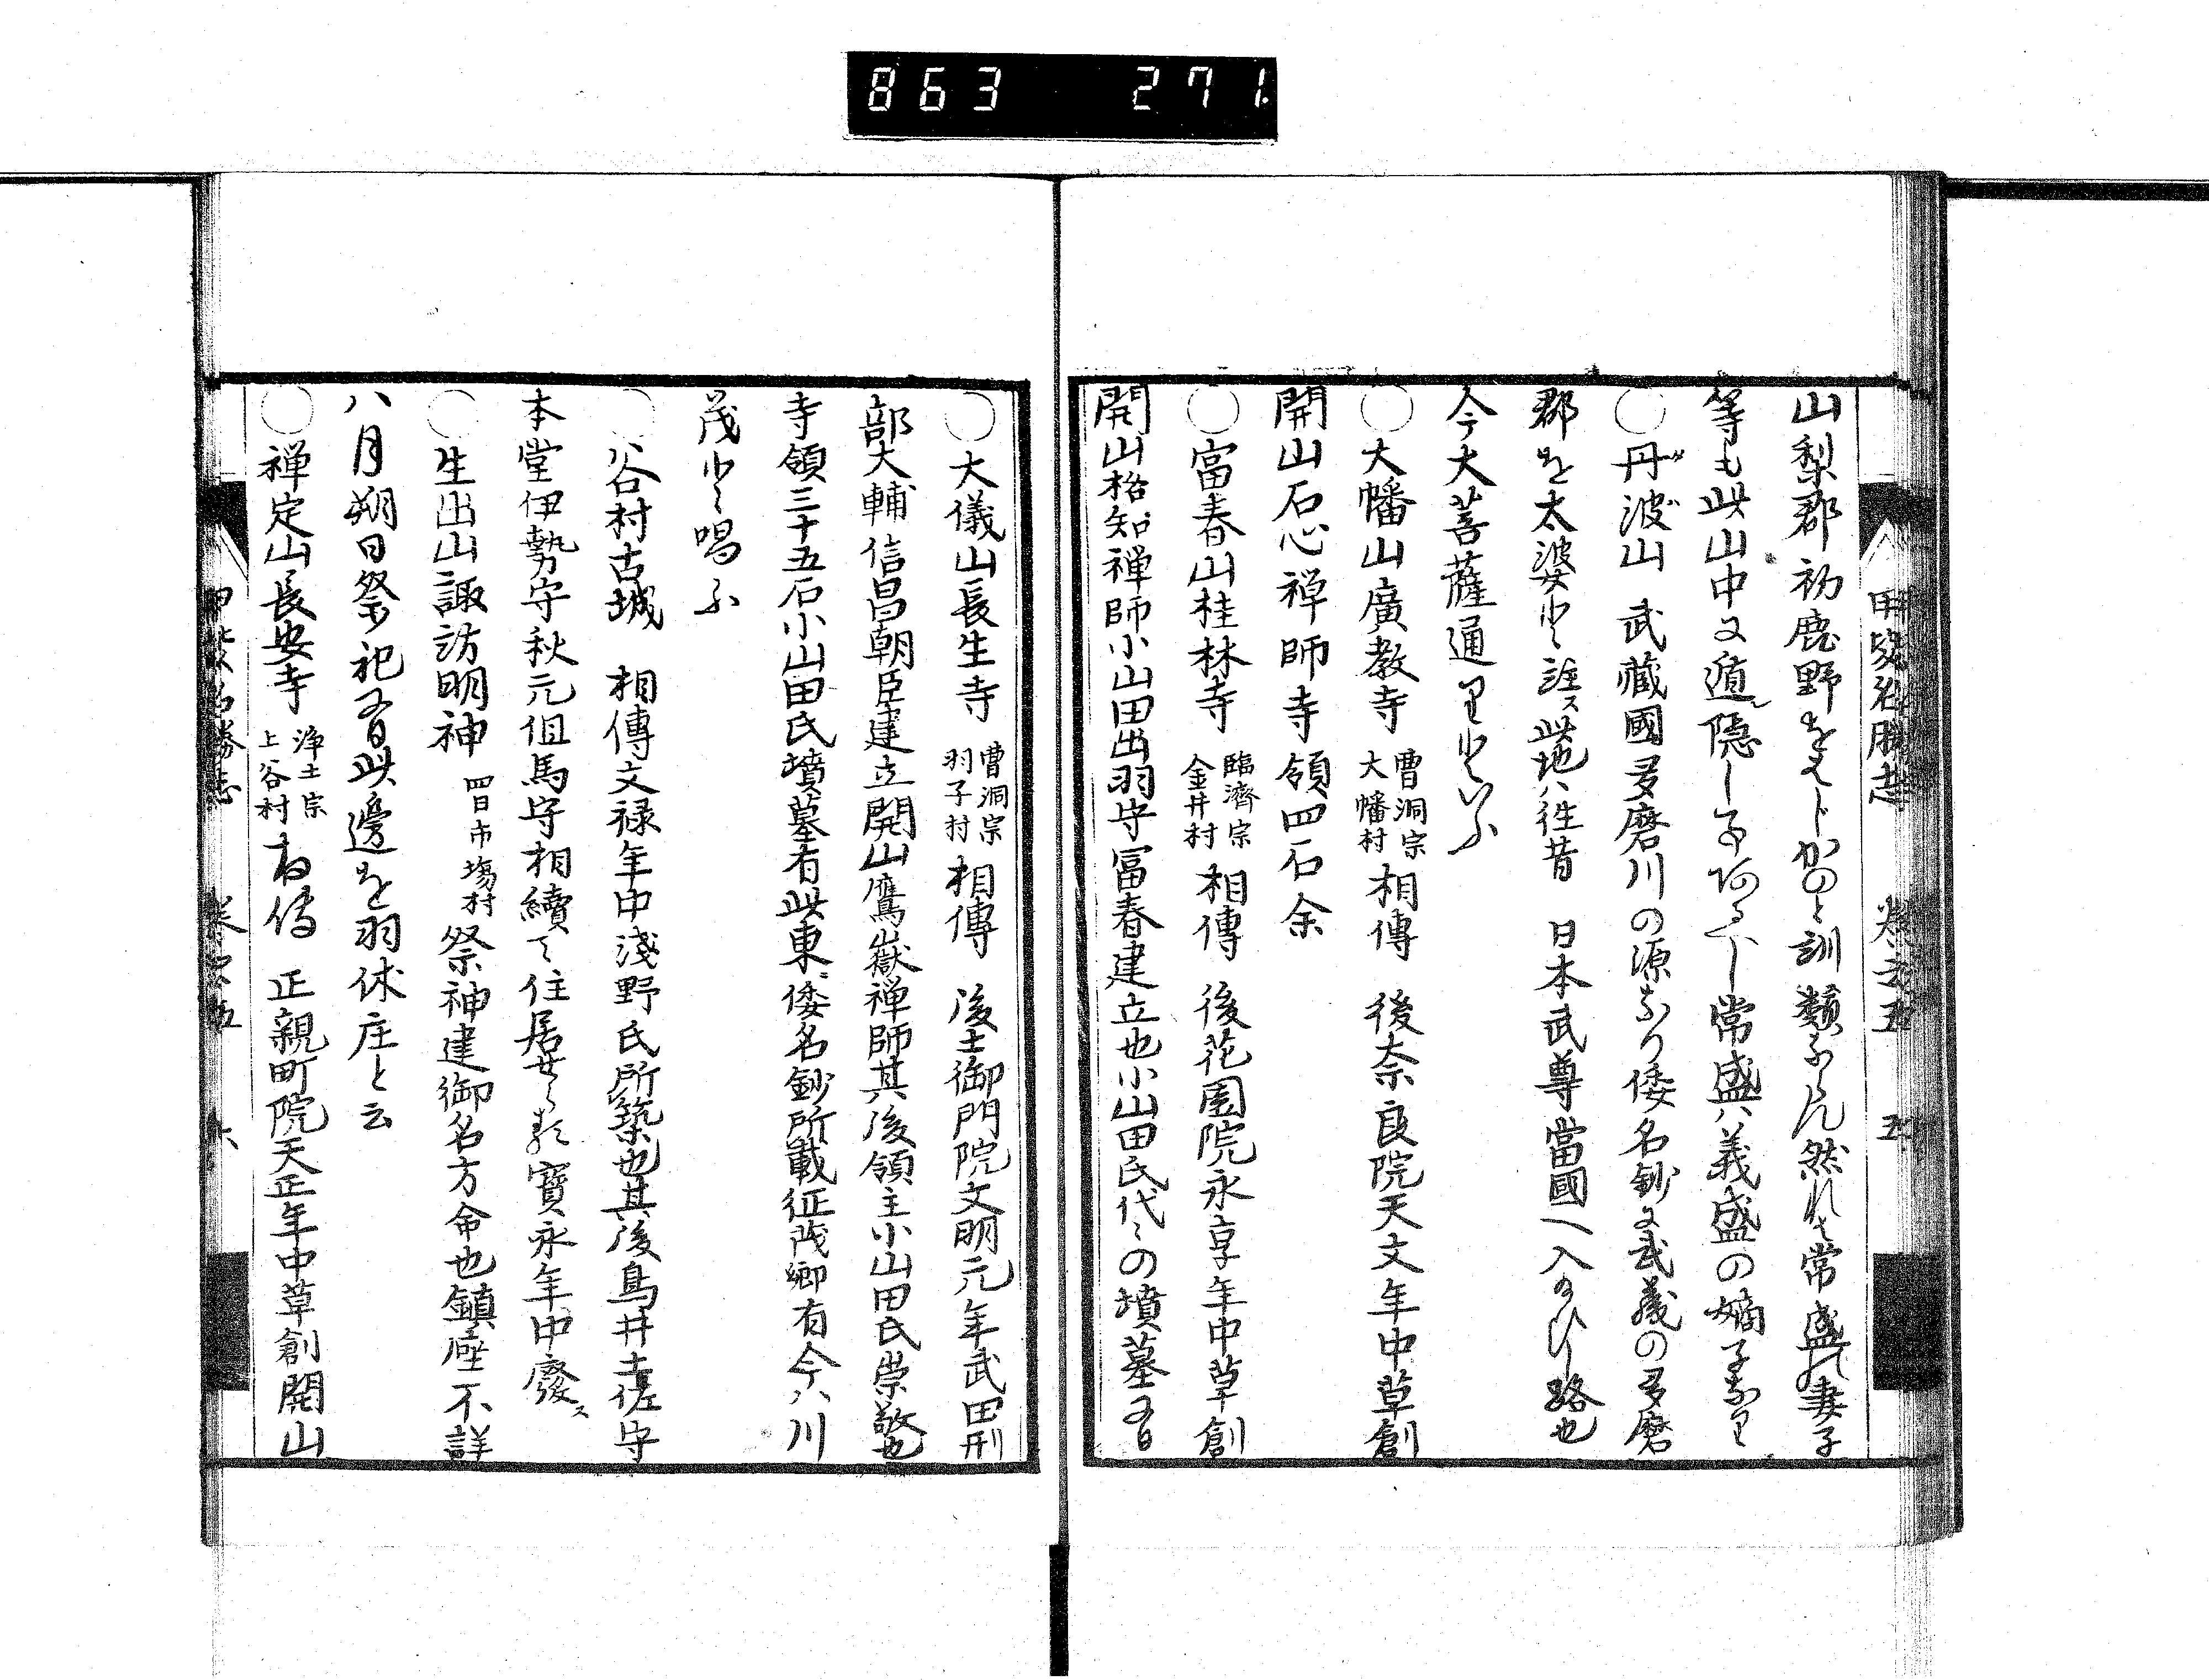 863 271
甲斐名勝志 巻之五 五
山梨郡初鹿野をはじかのと訓類ならん然れは常盛の妻子
等も此山中に遁隠し事あるへし常盛ハ義盛の嫡子なり
○丹波山 武藏國多磨川の源なり倭名鈔に武藏の多磨
郡を太婆と註ス此地ハ徃昔 日本武尊當國へ入給ひし路也
今大菩薩通りといふ
○大幡山廣教寺 曹洞宗 大幡村 相傳 後奈良院天文年中草創
開山石心禅師寺領四石余
○富春山桂林寺 臨濟宗 金井村 相傳 後花園院永享年中草創
開山格知禅師小山田出羽守富春建立也小山田氏代ミの墳墓有
○大儀山長生寺 曹洞宗 羽子村 相傳 後土御門院文明元年武田刑
部大輔信昌朝臣建立開山鷹嶽禅師其後領主小山田氏崇敬也
寺領三十五石小山田氏墳墓有此東ニ倭名鈔所載征茂郷有今ハ川
茂と唱ふ
○谷村古城 相傳文禄年中淺野氏所築也其後鳥井土佐守
本堂伊勢守秋元但馬守相續て住居せらる寳永年中廢ス
○生出山諏訪明神 四日市塲村 祭神建御名方命也鎮座不詳
八月朔日祭祀有此邊を羽休庄と云
○禅定山長安寺 浄土宗 上谷村 相傳 正親町院天正年中草創開山
甲斐名勝志 巻之五 六